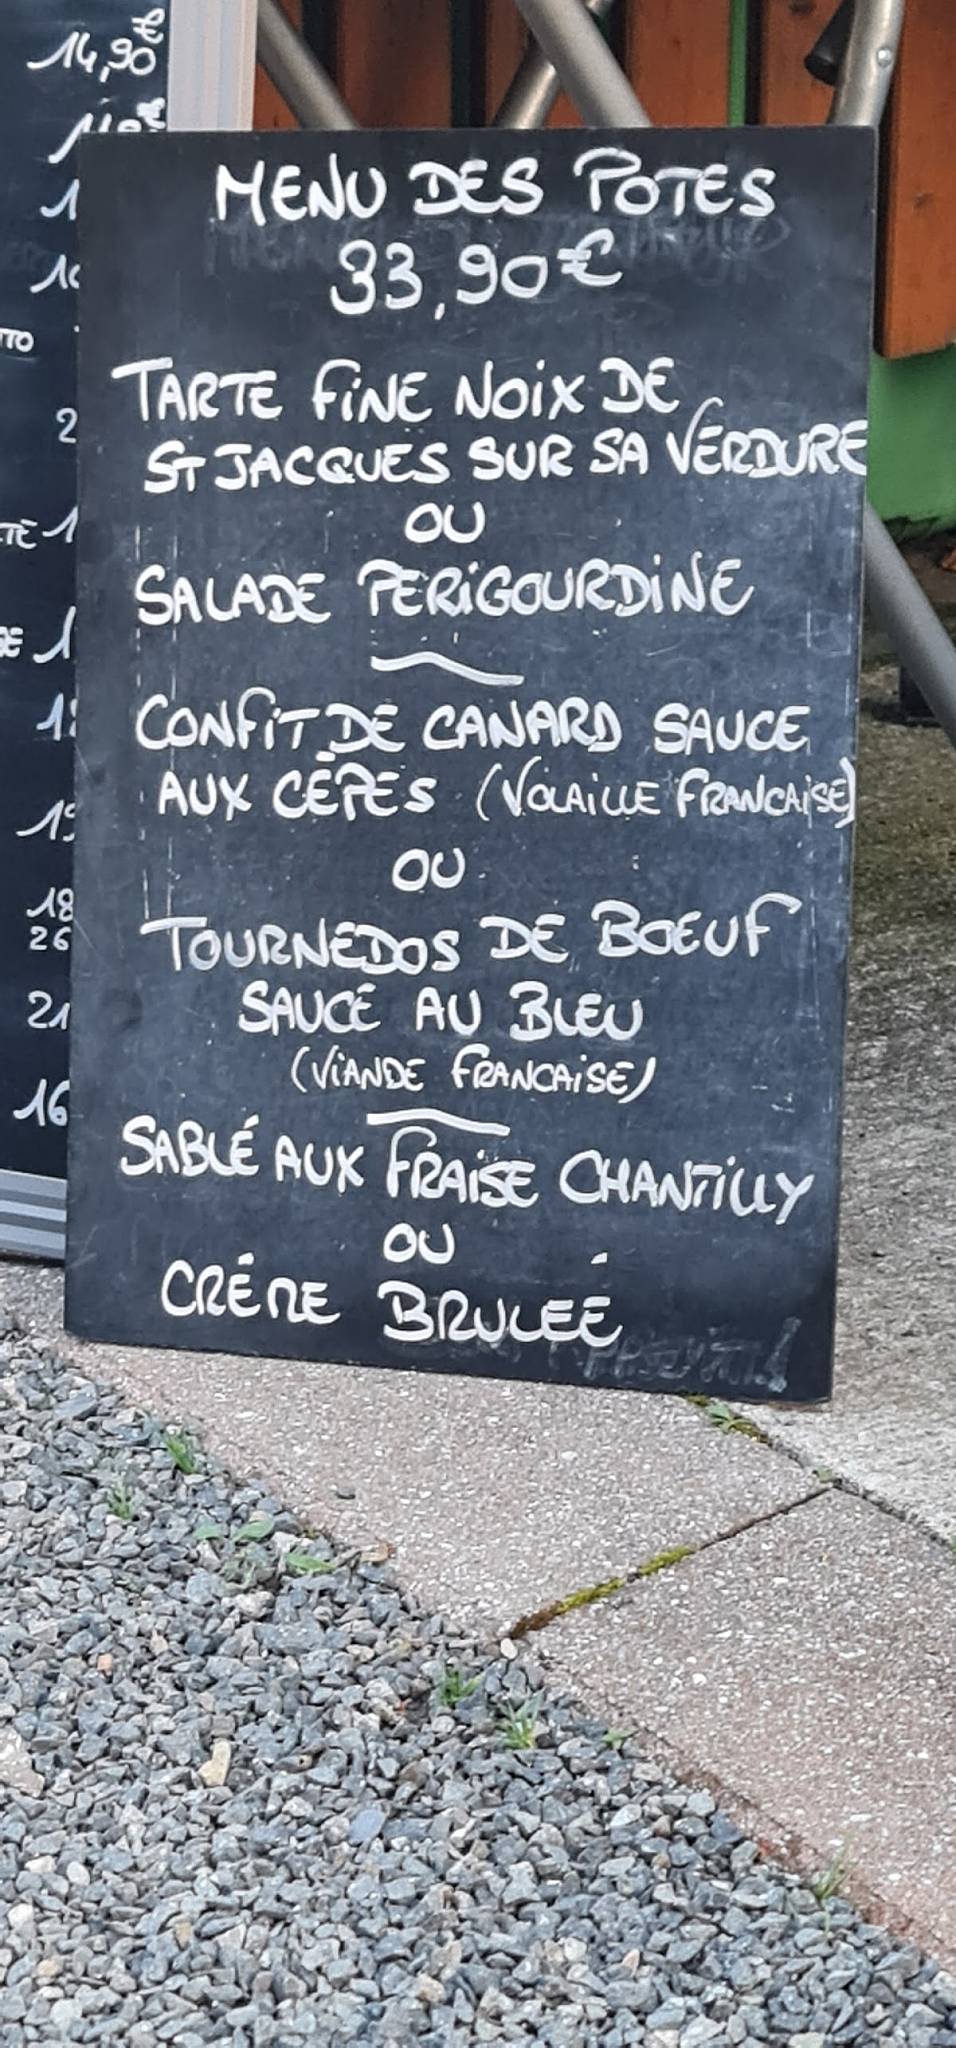 14,90€
MENU DES POTES
33,90€
TARTE FINE NOIX DE
ST JACQUES SUR SA VERDURE
OU
SALADE PERIGOURDINE
CONFIT DE CANARD SAUCE
AUX CÉPES (VOLAILLE FRANCAISE)
OU
TOURNEDOS DE BOEUF
SAUCE AU BLEU
(VIANDE FRANCAISE)
SABLÉ AUX FRAISE CHANTILLY
OU
CRÉME BRULÉE
18
26
21
16